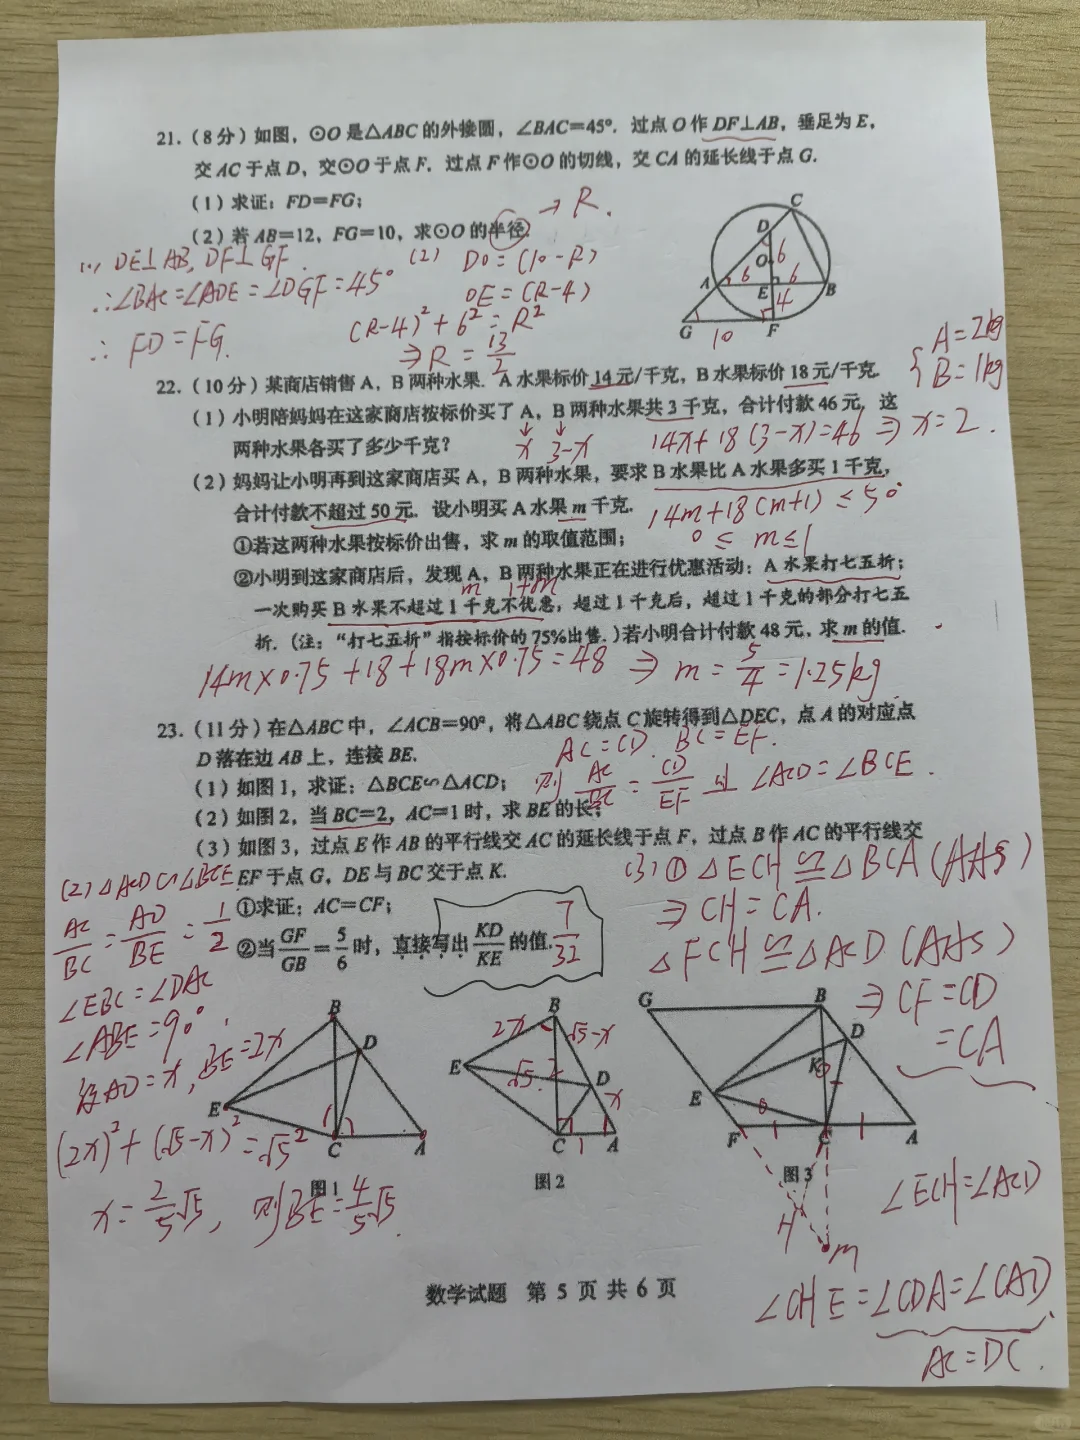 21.(8分)如图，⊙O是△ABC的外接圆，∠BAC=45°. 过点O作DF⊥AB，垂足为E，
交AC于点D，交⊙O于点F. 过点F作⊙O的切线，交CA的延长线于点G.
(1)求证：FD=FG；
→ R.
(2)若AB=12，FG=10，求⊙O的半径.
(1) DE⊥AB, DF⊥GF.
∴∠BAC=∠ADE=∠DGF=45°
∴ FD=FG.
(2) DO=(10-R)
OE=(R-4)
(R-4)²+6²=R²
⇒R=13/2
C
D
6
O
A
6
6
E
B
4
G
10
F
22.(10分)某商店销售A，B两种水果. A水果标价14元/千克，B水果标价18元/千克.
(1)小明陪妈妈在这家商店按标价买了A，B两种水果共3千克，合计付款46元，这
两种水果各买了多少千克？
x 3-x
14x+18(3-x)=46 ⇒ x=2.
{ A=2kg
B=1kg
(2)妈妈让小明再到这家商店买A，B两种水果，要求B水果比A水果多买1千克，
合计付款不超过50元. 设小明买A水果m千克.
14m+18(m+1)≤50
①若这两种水果按标价出售，求m的取值范围；
0≤m≤1
②小明到这家商店后，发现A，B两种水果正在进行优惠活动：A水果打七五折；
m 1+m
一次购买B水果不超过1千克不优惠，超过1千克后，超过1千克的部分打七五
折.(注：“打七五折”指按标价的75%出售.)若小明合计付款48元，求m的值.
14m×0.75+18+18m×0.75=48 ⇒ m=5/4=1.25kg
23.(11分)在△ABC中，∠ACB=90°，将△ABC绕点C旋转得到△DEC，点A的对应点
D落在边AB上，连接BE.
AC=CD. BC=EF.
(1)如图1，求证：△BCE∽△ACD；
则 AC/BC=CD/EF 且∠ACD=∠BCE.
(2)如图2，当BC=2，AC=1时，求BE的长；
(3)如图3，过点E作AB的平行线交AC的延长线于点F，过点B作AC的平行线交
EF于点G，DE与BC交于点K.
①求证：AC=CF；
②当GF/GB=5/6时，直接写出KD/KE的值.
7/32
(2)△ACD∽△BCE
AC/BC=AD/BE=1/2
∠EBC=∠DAC
∠ABE=90°.
设AD=x, BE=2x
(2x)²+(√5-x)²=√5²
x=2/5√5, 则BE=4/5√5.
(3)①△ECH≌△BCA(AAS)
⇒CH=CA.
△FCH≌△ACD(AAS)
⇒CF=CD
=CA
B
D
E
C
A
图1
B
2x
√5-x
E
√5
2
D
x
C
1
A
图2
G
B
D
K
E
F
1
C
1
A
图3
H
M
∠ECH=∠ACD
∠CHE=∠CDA=∠CAD
AC=DC.
数学试题 第5页共6页